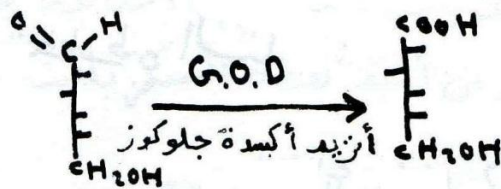 O
C H
COOH
G.O.D
أنزيم أكسدة جلوكوز
CH2OH
CH2OH